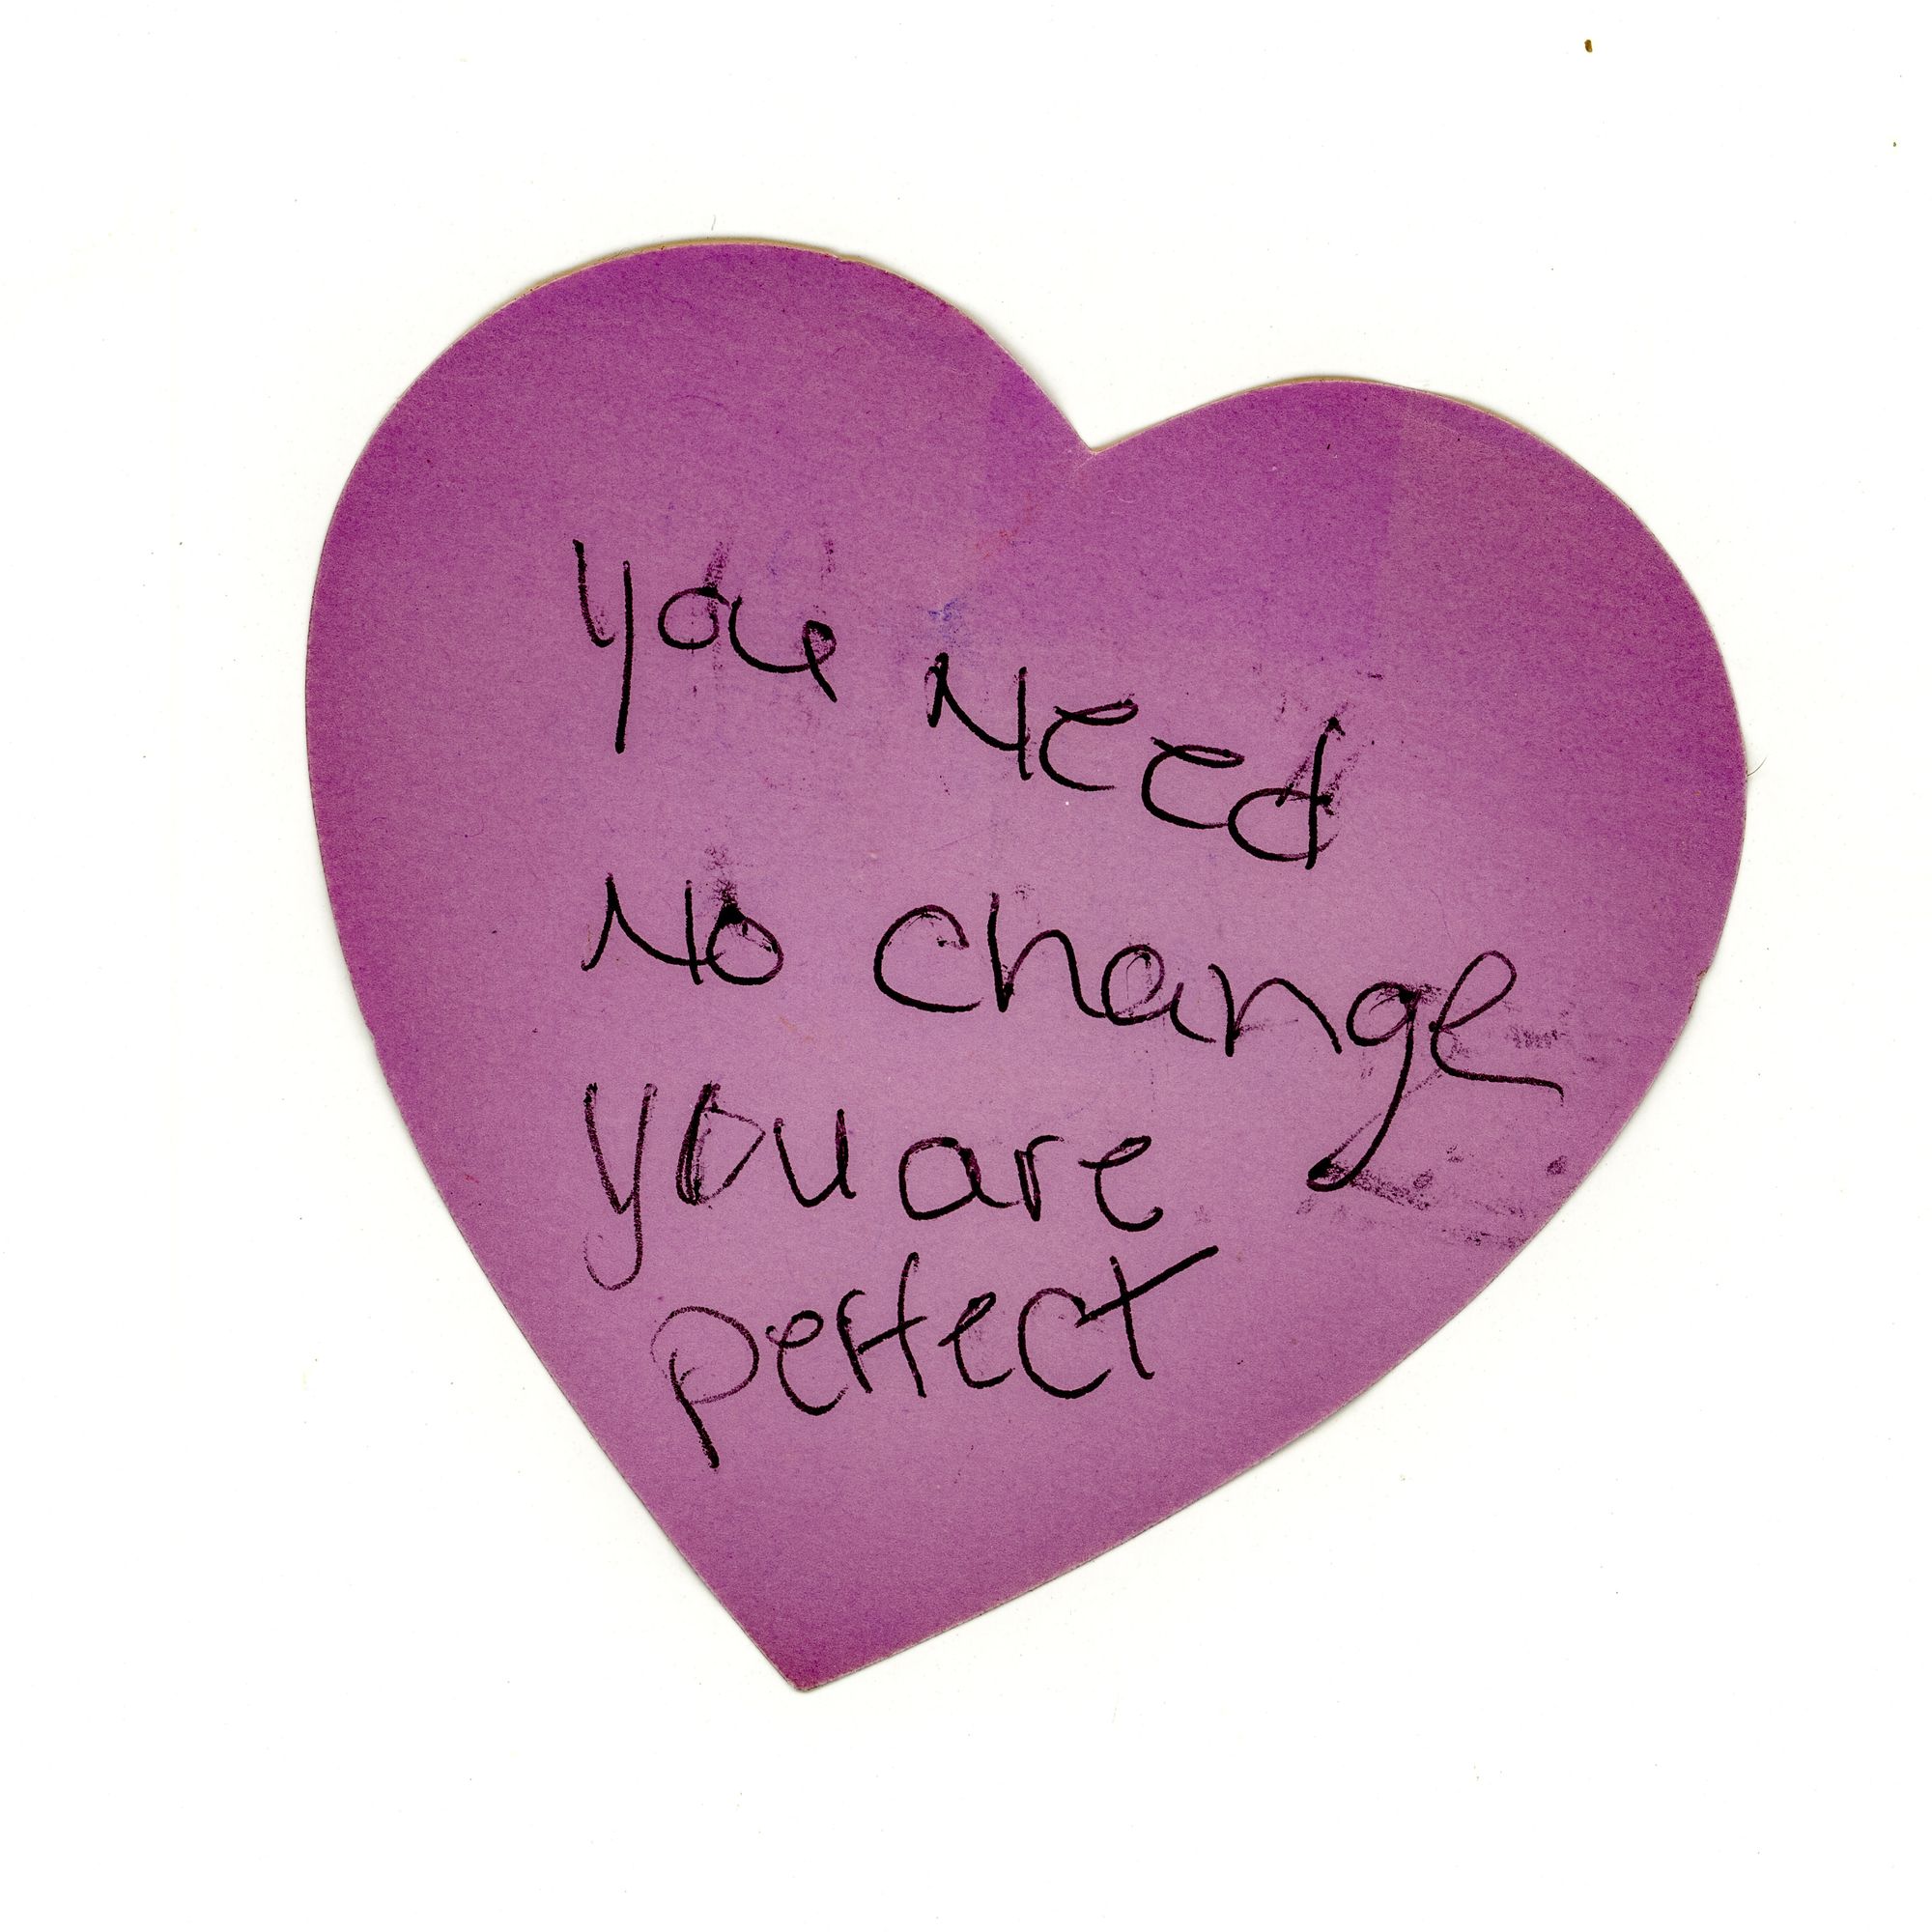 you Need
No change
you are
perfect